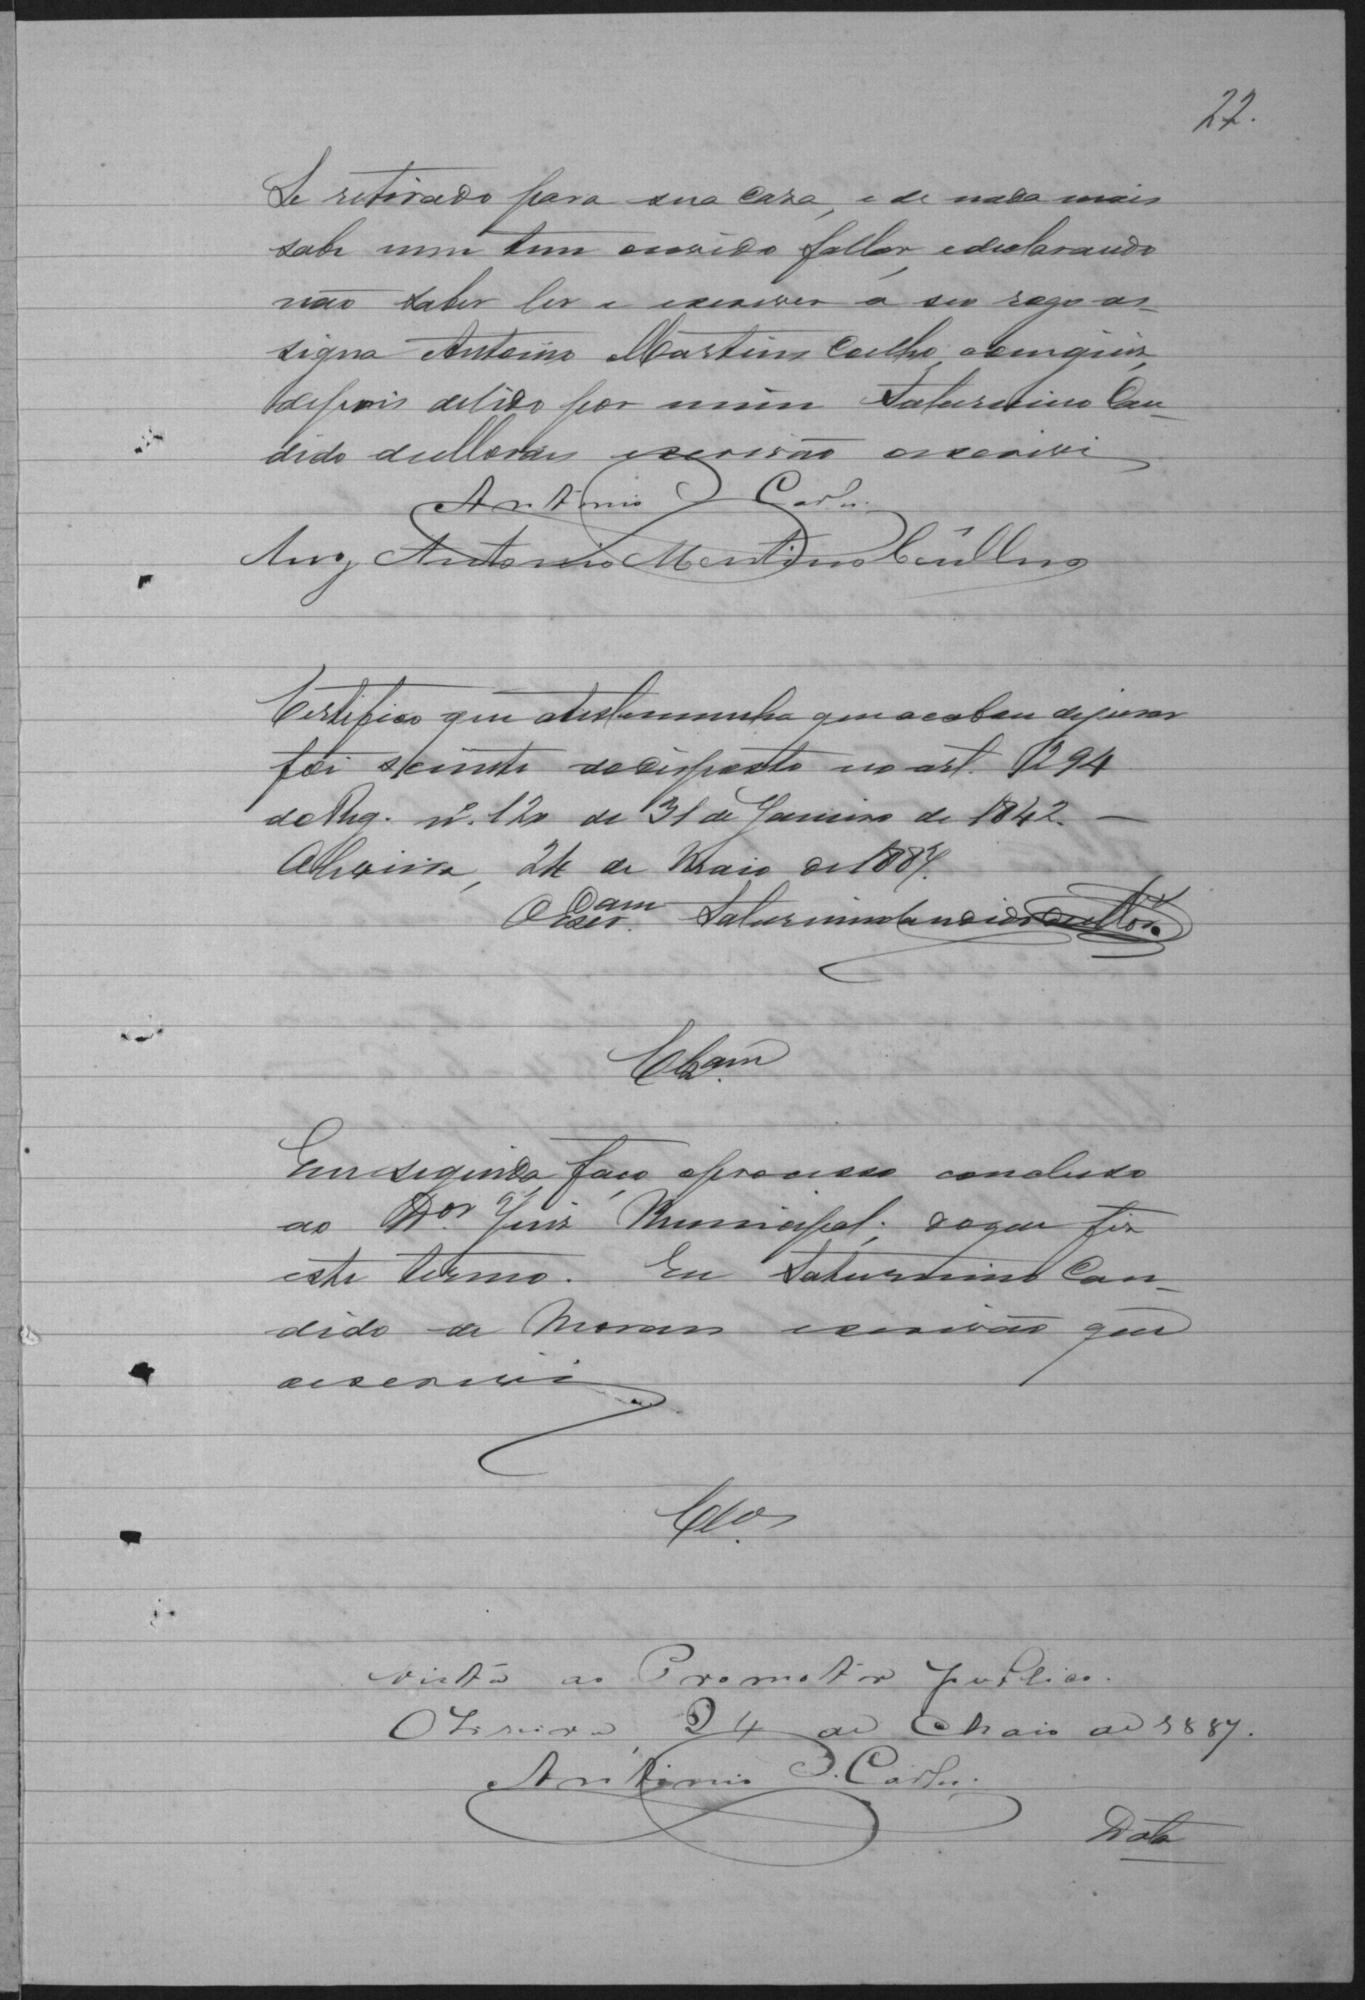 22.
Se retirado para sua caza, e de nada mais
sabe nem tem ouvido fallar, e declarando
não saber ler e escrever á seu rogo as-
signa Antonio Martins Coelho, com juiz,
depois de lido por mim Saturnino Can-
dido de Moraes escrivão o escrivi
Antonio
Antonio Martins Coelho
Certifico que a testemunha que acabou de jurar
foi sciente do disposto no art. 294
do Reg. nº. 120 de 31 de Janeiro de 1842. —
Oliveira, 24 de Maio de 1887.
O Escr.am Saturnino Candido de Moraes
Clzam
Em seguida, faço o processo concluso
ao Dor. Juiz Municipal; do que fiz
este termo. Eu Saturnino Can-
dido de Moraes escrivão que
o escrivi
Clos
Vista ao Promotor publico.
Oliveira, 24 de Maio de 1887.
Antonio
Data